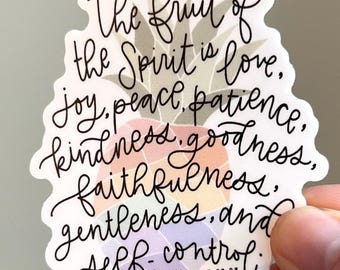 the fruit of
the Spirit is love,
joy, peace, patience,
kindness, goodness,
faithfulness,
gentleness, and
self-control.